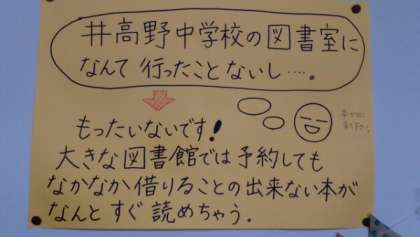 井高野中学校の図書室に
なんて行ったことないし….
もったいないです!
大きな図書館では予約しても
なかなか借りることの出来ない本が
なんとすぐ読めちゃう.